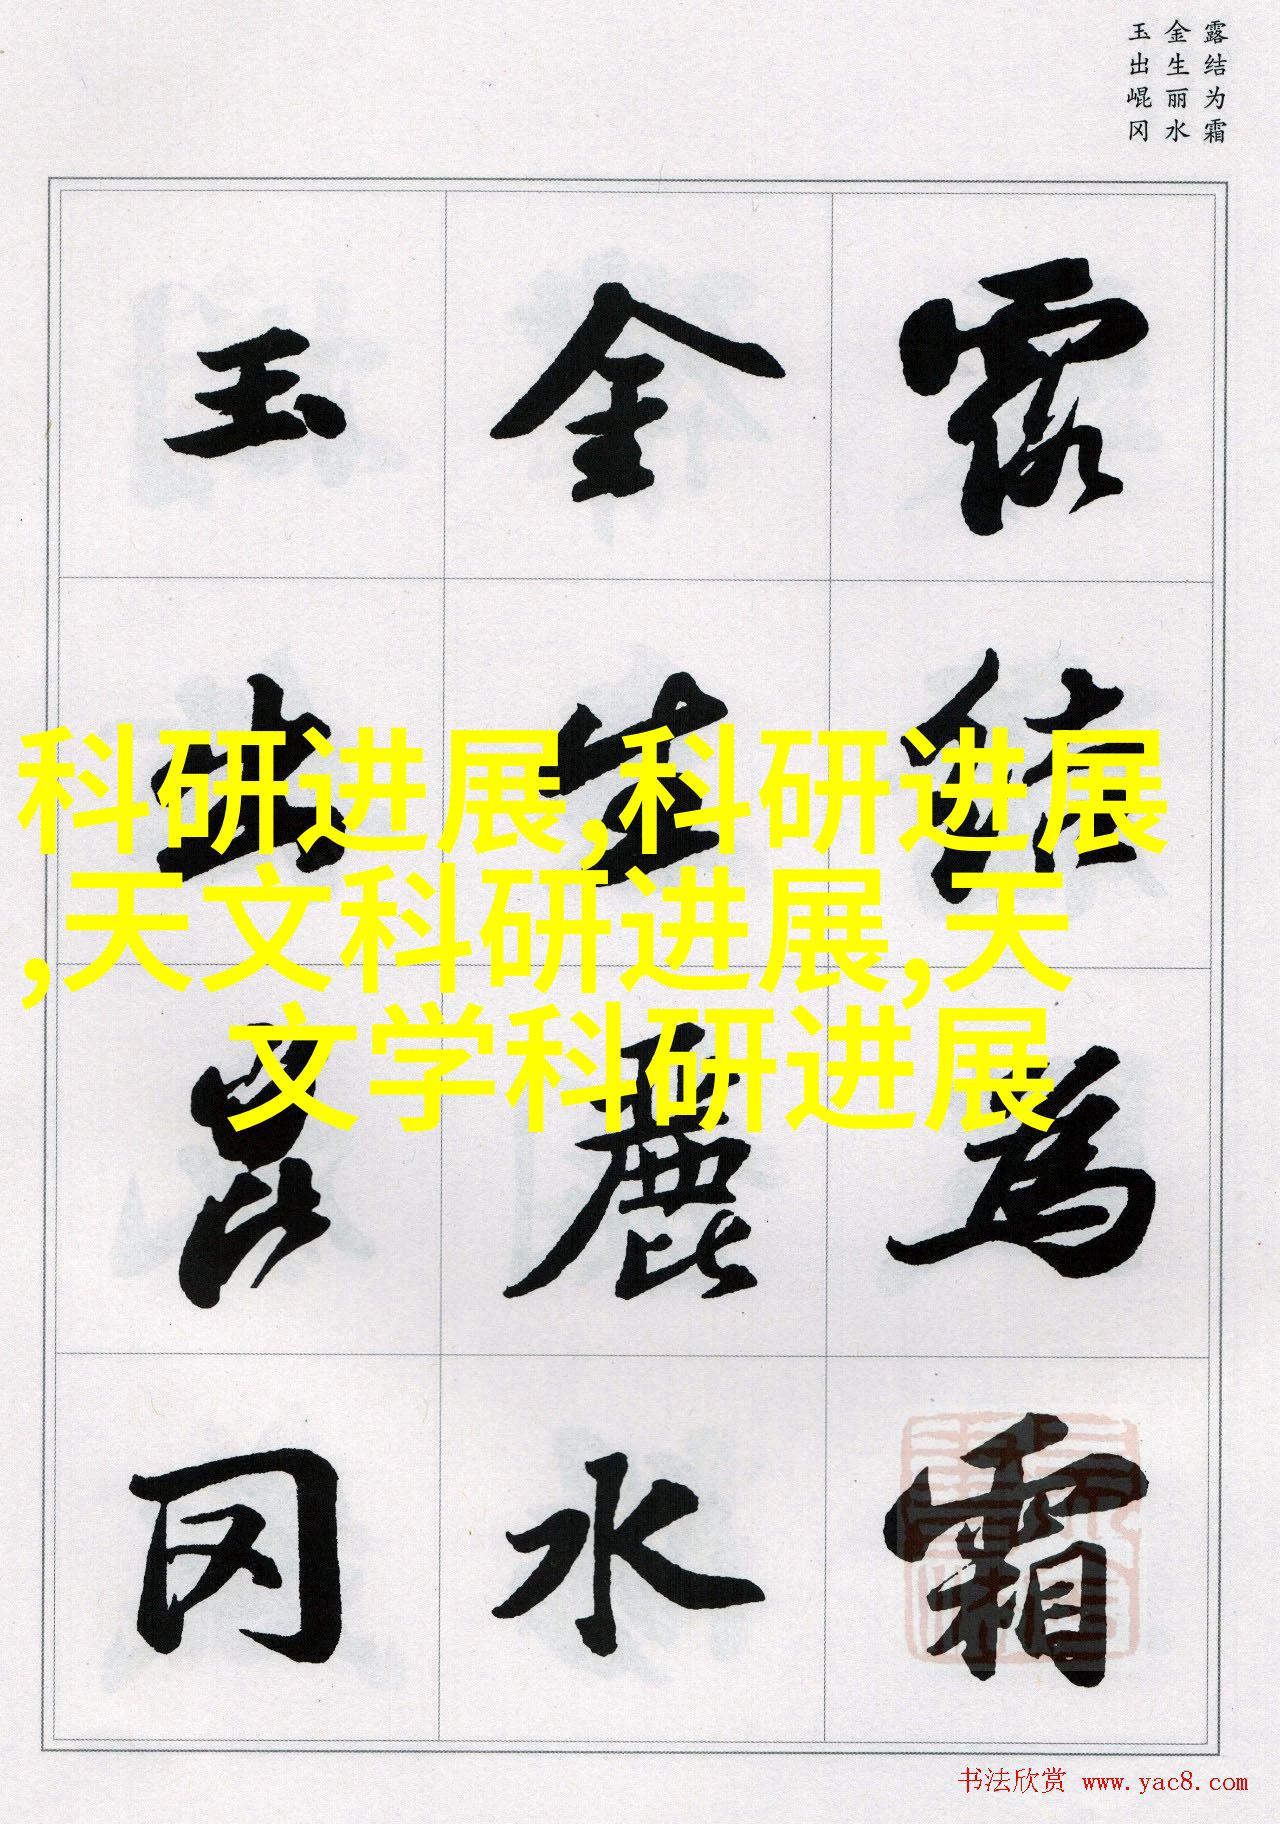 露结为霜
金生丽水
玉出崐冈
露結為霜
金生麗水
玉出崑冈
科研进展,科研进展
,天文科研进展,天
文学科研进展
书法欣赏 www.yac8.com